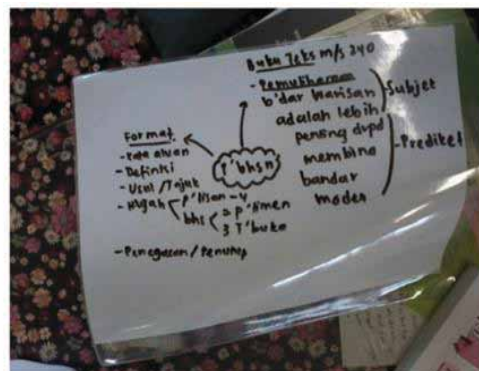 Buku Teks m/s 240
- Pemuliharaan
b'dar warisan
adalah lebih
penting drpd
membina
bandar
moden
Subjet
- Prediket
Format
- Kata aluan
- Definisi
- Usul / Tajuk
- Hujah
p'lisan - 4
bhs
2 p'limen
3 T'buka
- Penegasan / Penutup
P'bhsn